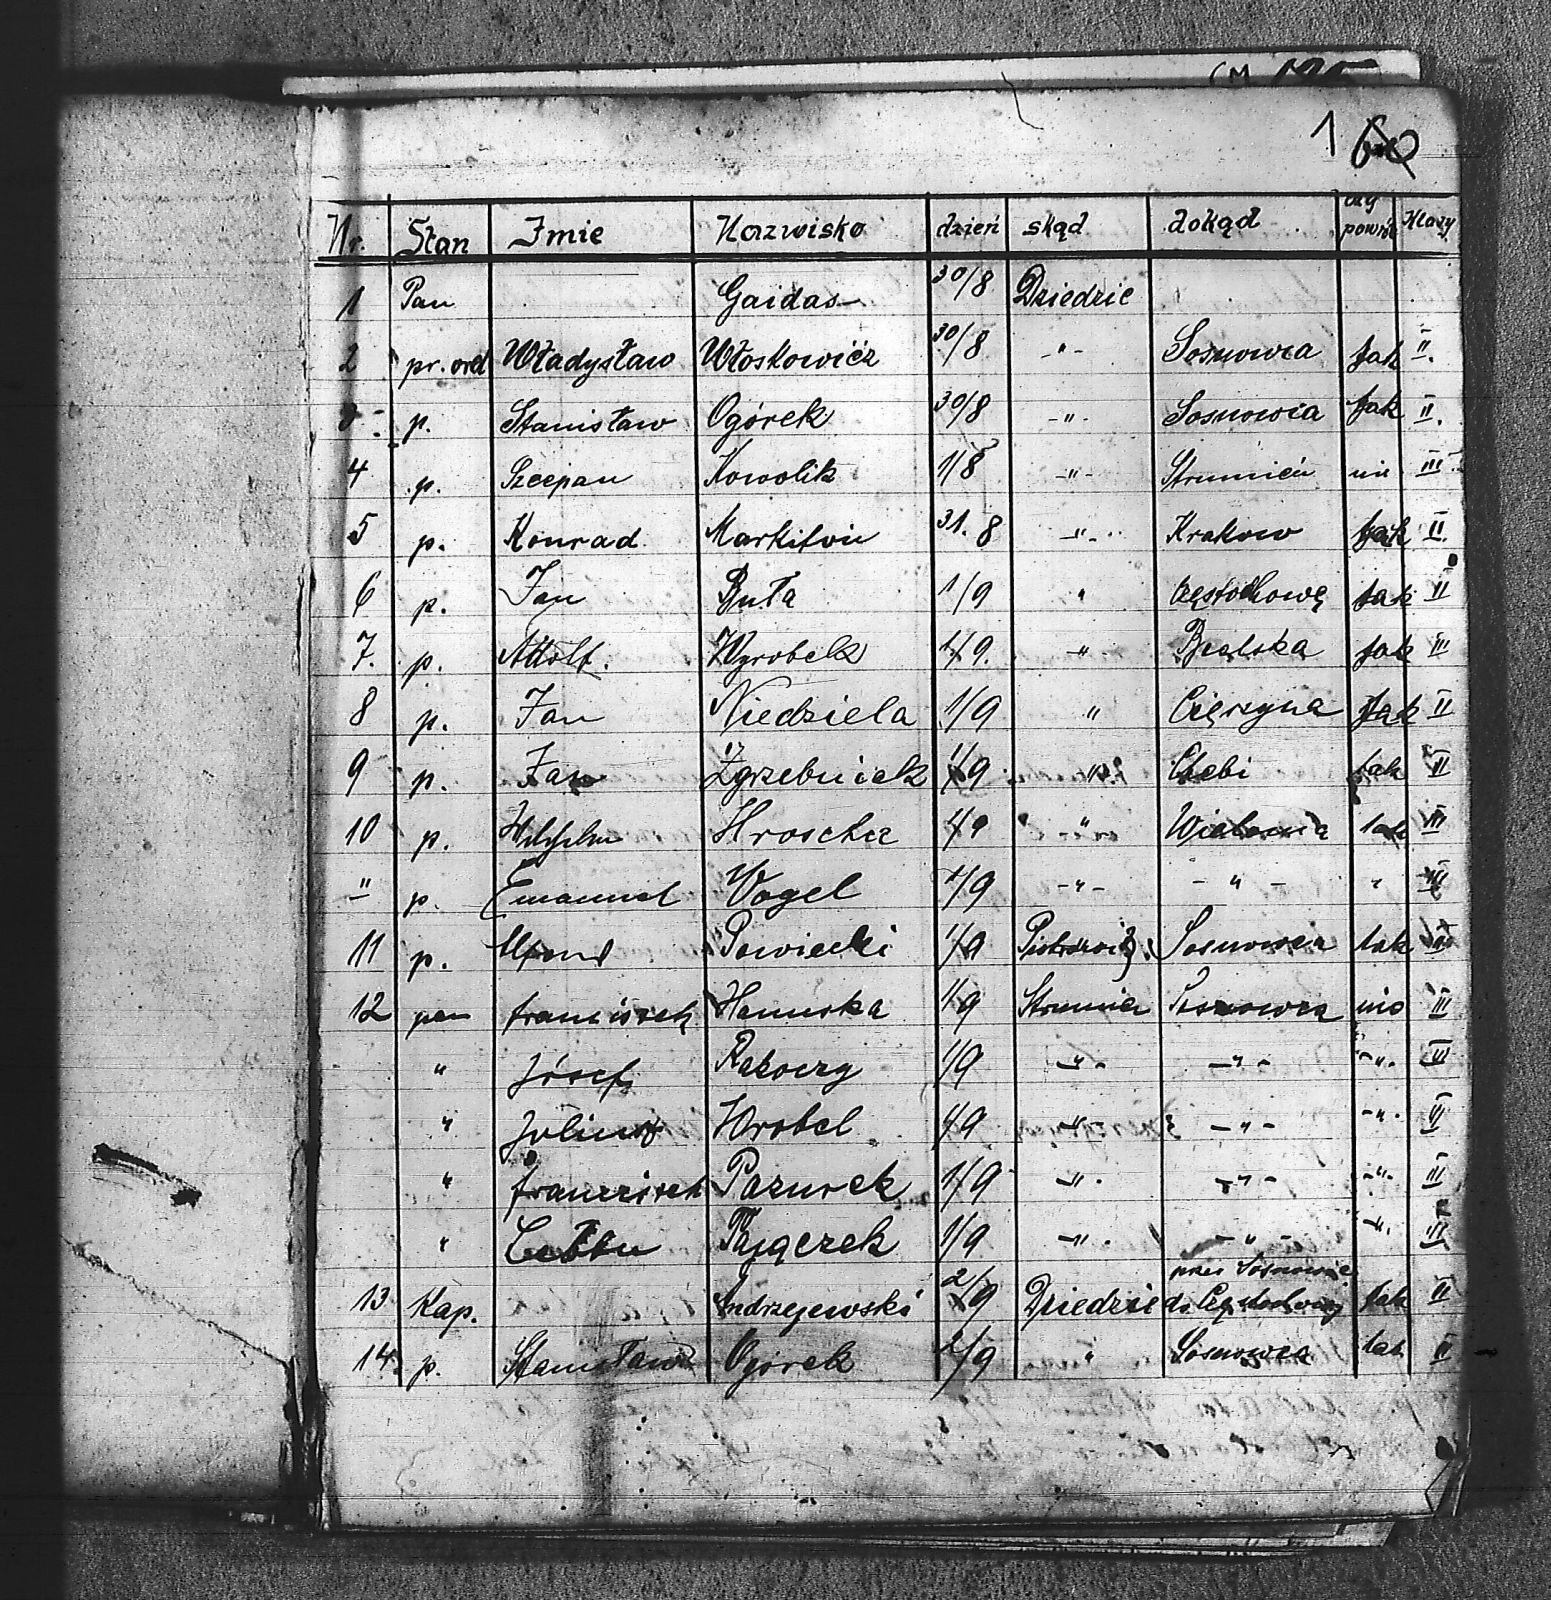 1
Nr. Stan Imie Nazwisko dzień skąd dokąd czy powró Klasy
1 Pan Gaidas 30/8 Dziedzic
2 pr. ord Władysław Włoskowicz 30/8 -"- Sosnowca tak II.
3 p. Stanisław Ogórek 30/8 -"- Sosnowca tak II.
4 p. Szczepan Kowolik 1/8 -"- Strumień nie III
5 p. Konrad Markiton 31. 8 -"- Krakow tak II.
6 p. Jan Buła 1/9 " Częstochowę tak II
7. p. Adolf. Wyrobek 1/9. -"- Bielska tak III
8 p. Jan Niedziela 1/9 " Cięszyna tak II
9 p. Jan Zgrzebniok 1/9 " Chebi tak III
10 p. Wilhelm Hroscha 1/9 " tak III
" p. Emanuel Vogel 1/9 -"- -"- " III
11 p. Sowiecki 1/9 Sosnowca tak III
12 pan franciszek Hanuska 1/9 Strumien Sosnowca nie III
" Józef Rakoczy 1/9 -"- -"- -"- III
" Juliusz Wrobel 1/9 -"- -"- -"- III
" franciszek Pazurek 1/9 -"- -"- -"- III
" Pajączek 1/9 -"- -"- -"- III
13 Kap. Andrzejewski 2/9 Dziedzic przez Sosnowiec do Częstochowy tak II
14. p. Stanisława Ogórek 2/9 " Sosnowca tak II